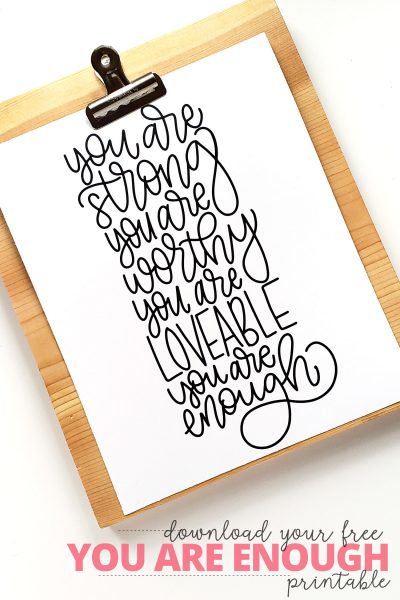 you are
strong
you are
worthy
you are
LOVEABLE
you are
enough
download your free
YOU ARE ENOUGH
printable